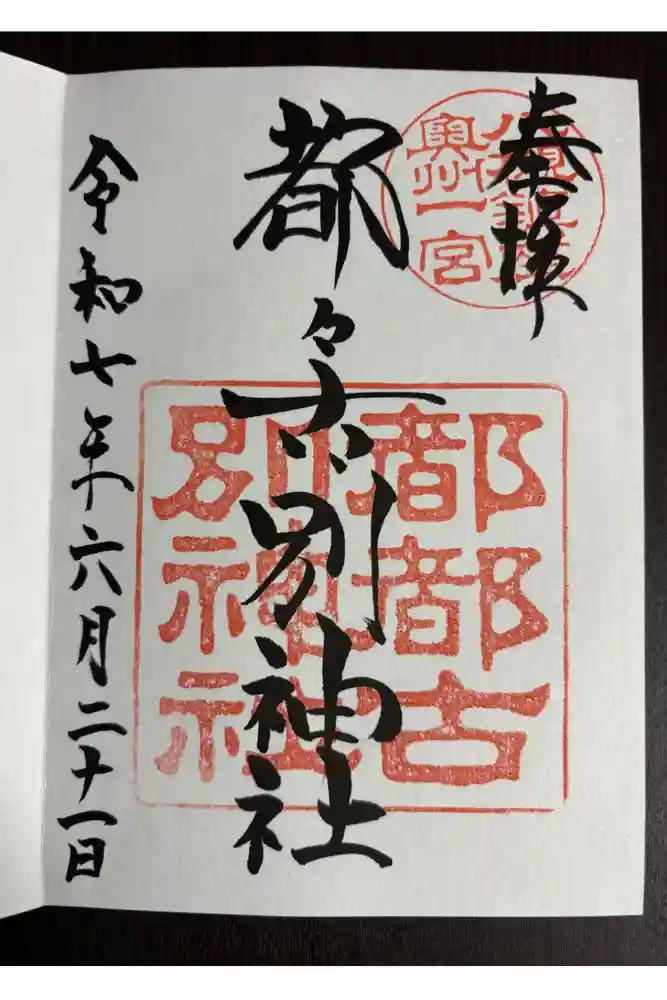 奉拝
奥州一宮
都々古別神社
都都古
別神社
令和七年六月二十一日